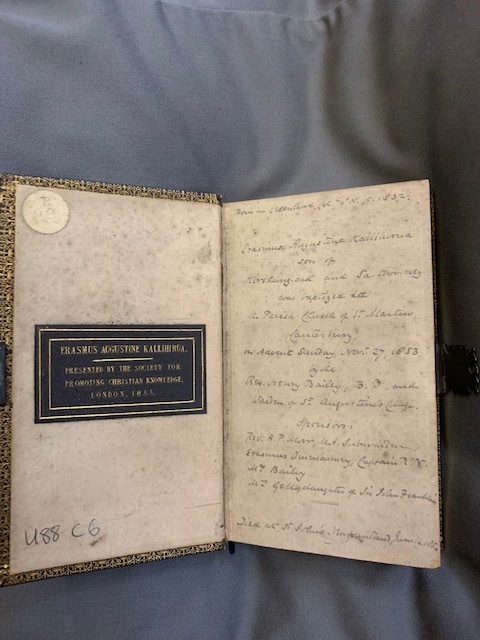 ERASMUS AUGUSTINE KALLIHIRUA.
PRESENTED BY THE SOCIETY FOR
PROMOTING CHRISTIAN KNOWLEDGE,
LONDON, 1855.
U88 C6
Born in Greenland, Lat. N. 1832.
Erasmus Augustine Kallihirua
son of
and
was baptized at
the Parish Church of St. Martin
Canterbury;
on Advent Sunday, Novr. 27, 1853
by the
Rev. Henry Bailey, B. D. and
Warden of St. Augustine's Coll.
Sponsors;
Rev. A. P. Moor, M.A. Subwarden
Erasmus Ommanney, Captain R. N.
Mrs Bailey
Mrs Gell, daughter of Sir John Franklin
Died at St. John's, Newfoundland, June